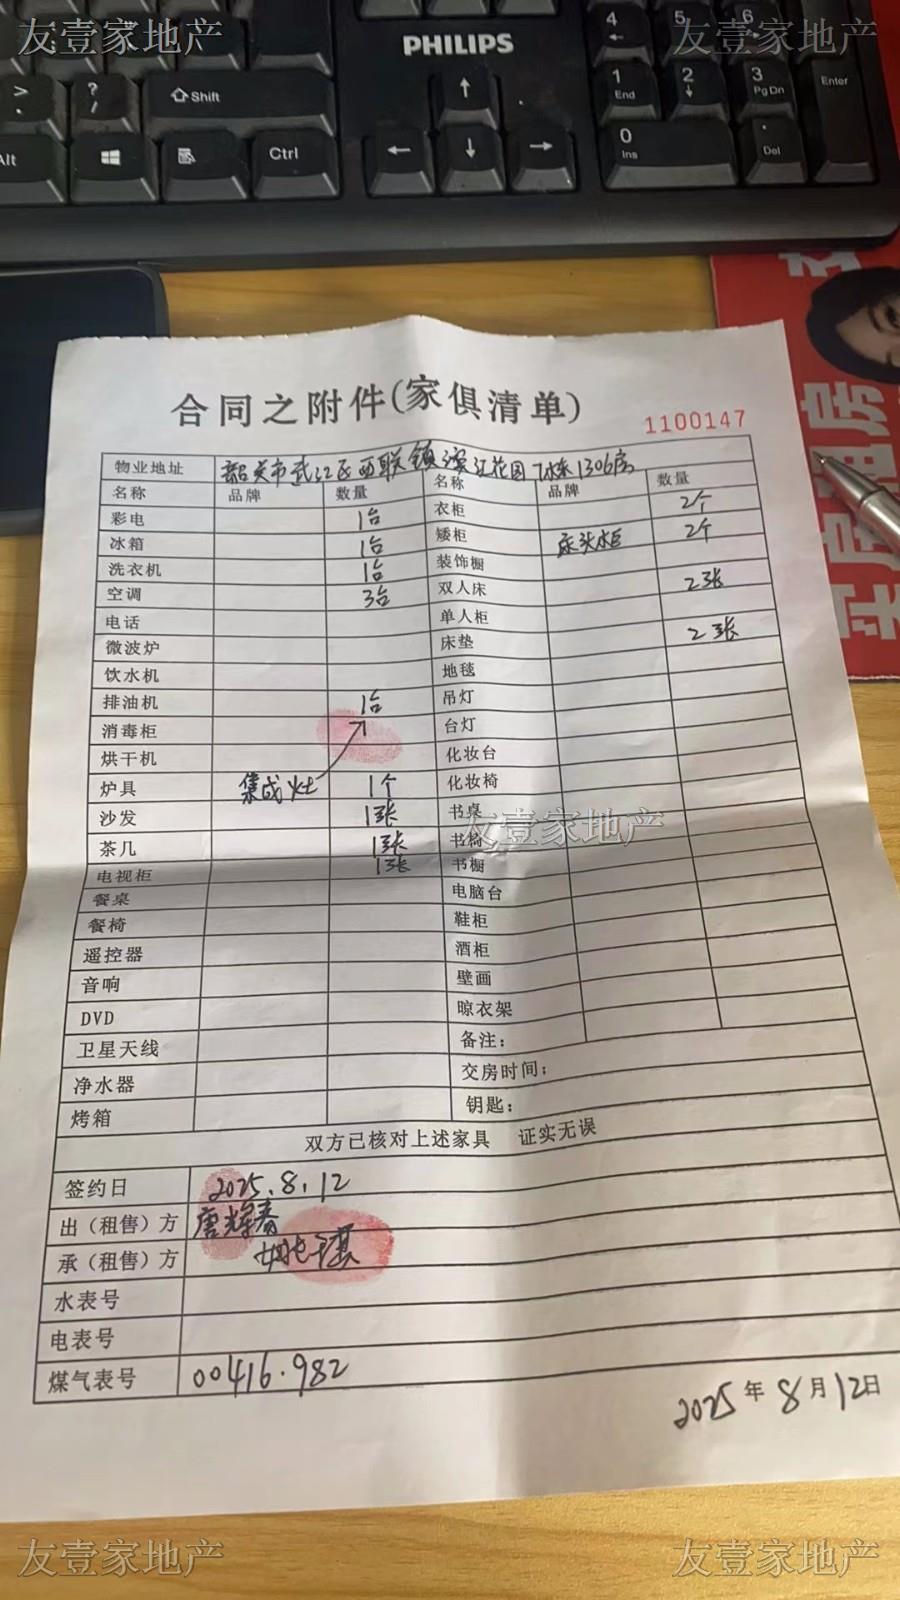 友壹家地产 友壹家地产
PHILIPS
4 5 6
> . ? / Shift 1 End 2 3 Pg Dn Enter
Alt Ctrl 0 Ins . Del
合同之附件(家俱清单)
1100147
物业地址 韶关市武江区西联镇滨江花园 1306房
名称 品牌 数量 名称 品牌 数量
彩电 1台 衣柜 2个
冰箱 1台 矮柜 床头柜 2个
洗衣机 1台 装饰橱
空调 3台 双人床 2张
电话 单人柜
微波炉 床垫 2张
饮水机 地毯
排油机 1台 吊灯
消毒柜 台灯
烘干机 化妆台
炉具 集成灶 1个 化妆椅
沙发 1张 书桌
茶几 1张 书椅
电视柜 1张 书橱
餐桌 电脑台
餐椅 鞋柜
遥控器 酒柜
音响 壁画
DVD 晾衣架
卫星天线 备注：
净水器 交房时间：
烤箱 钥匙：
友壹家地产
双方已核对上述家具 证实无误
签约日 2025.8.12
出（租售）方 唐辉春
承（租售）方
水表号
电表号
煤气表号 00416.982
2025年8月12日
友壹家地产 友壹家地产